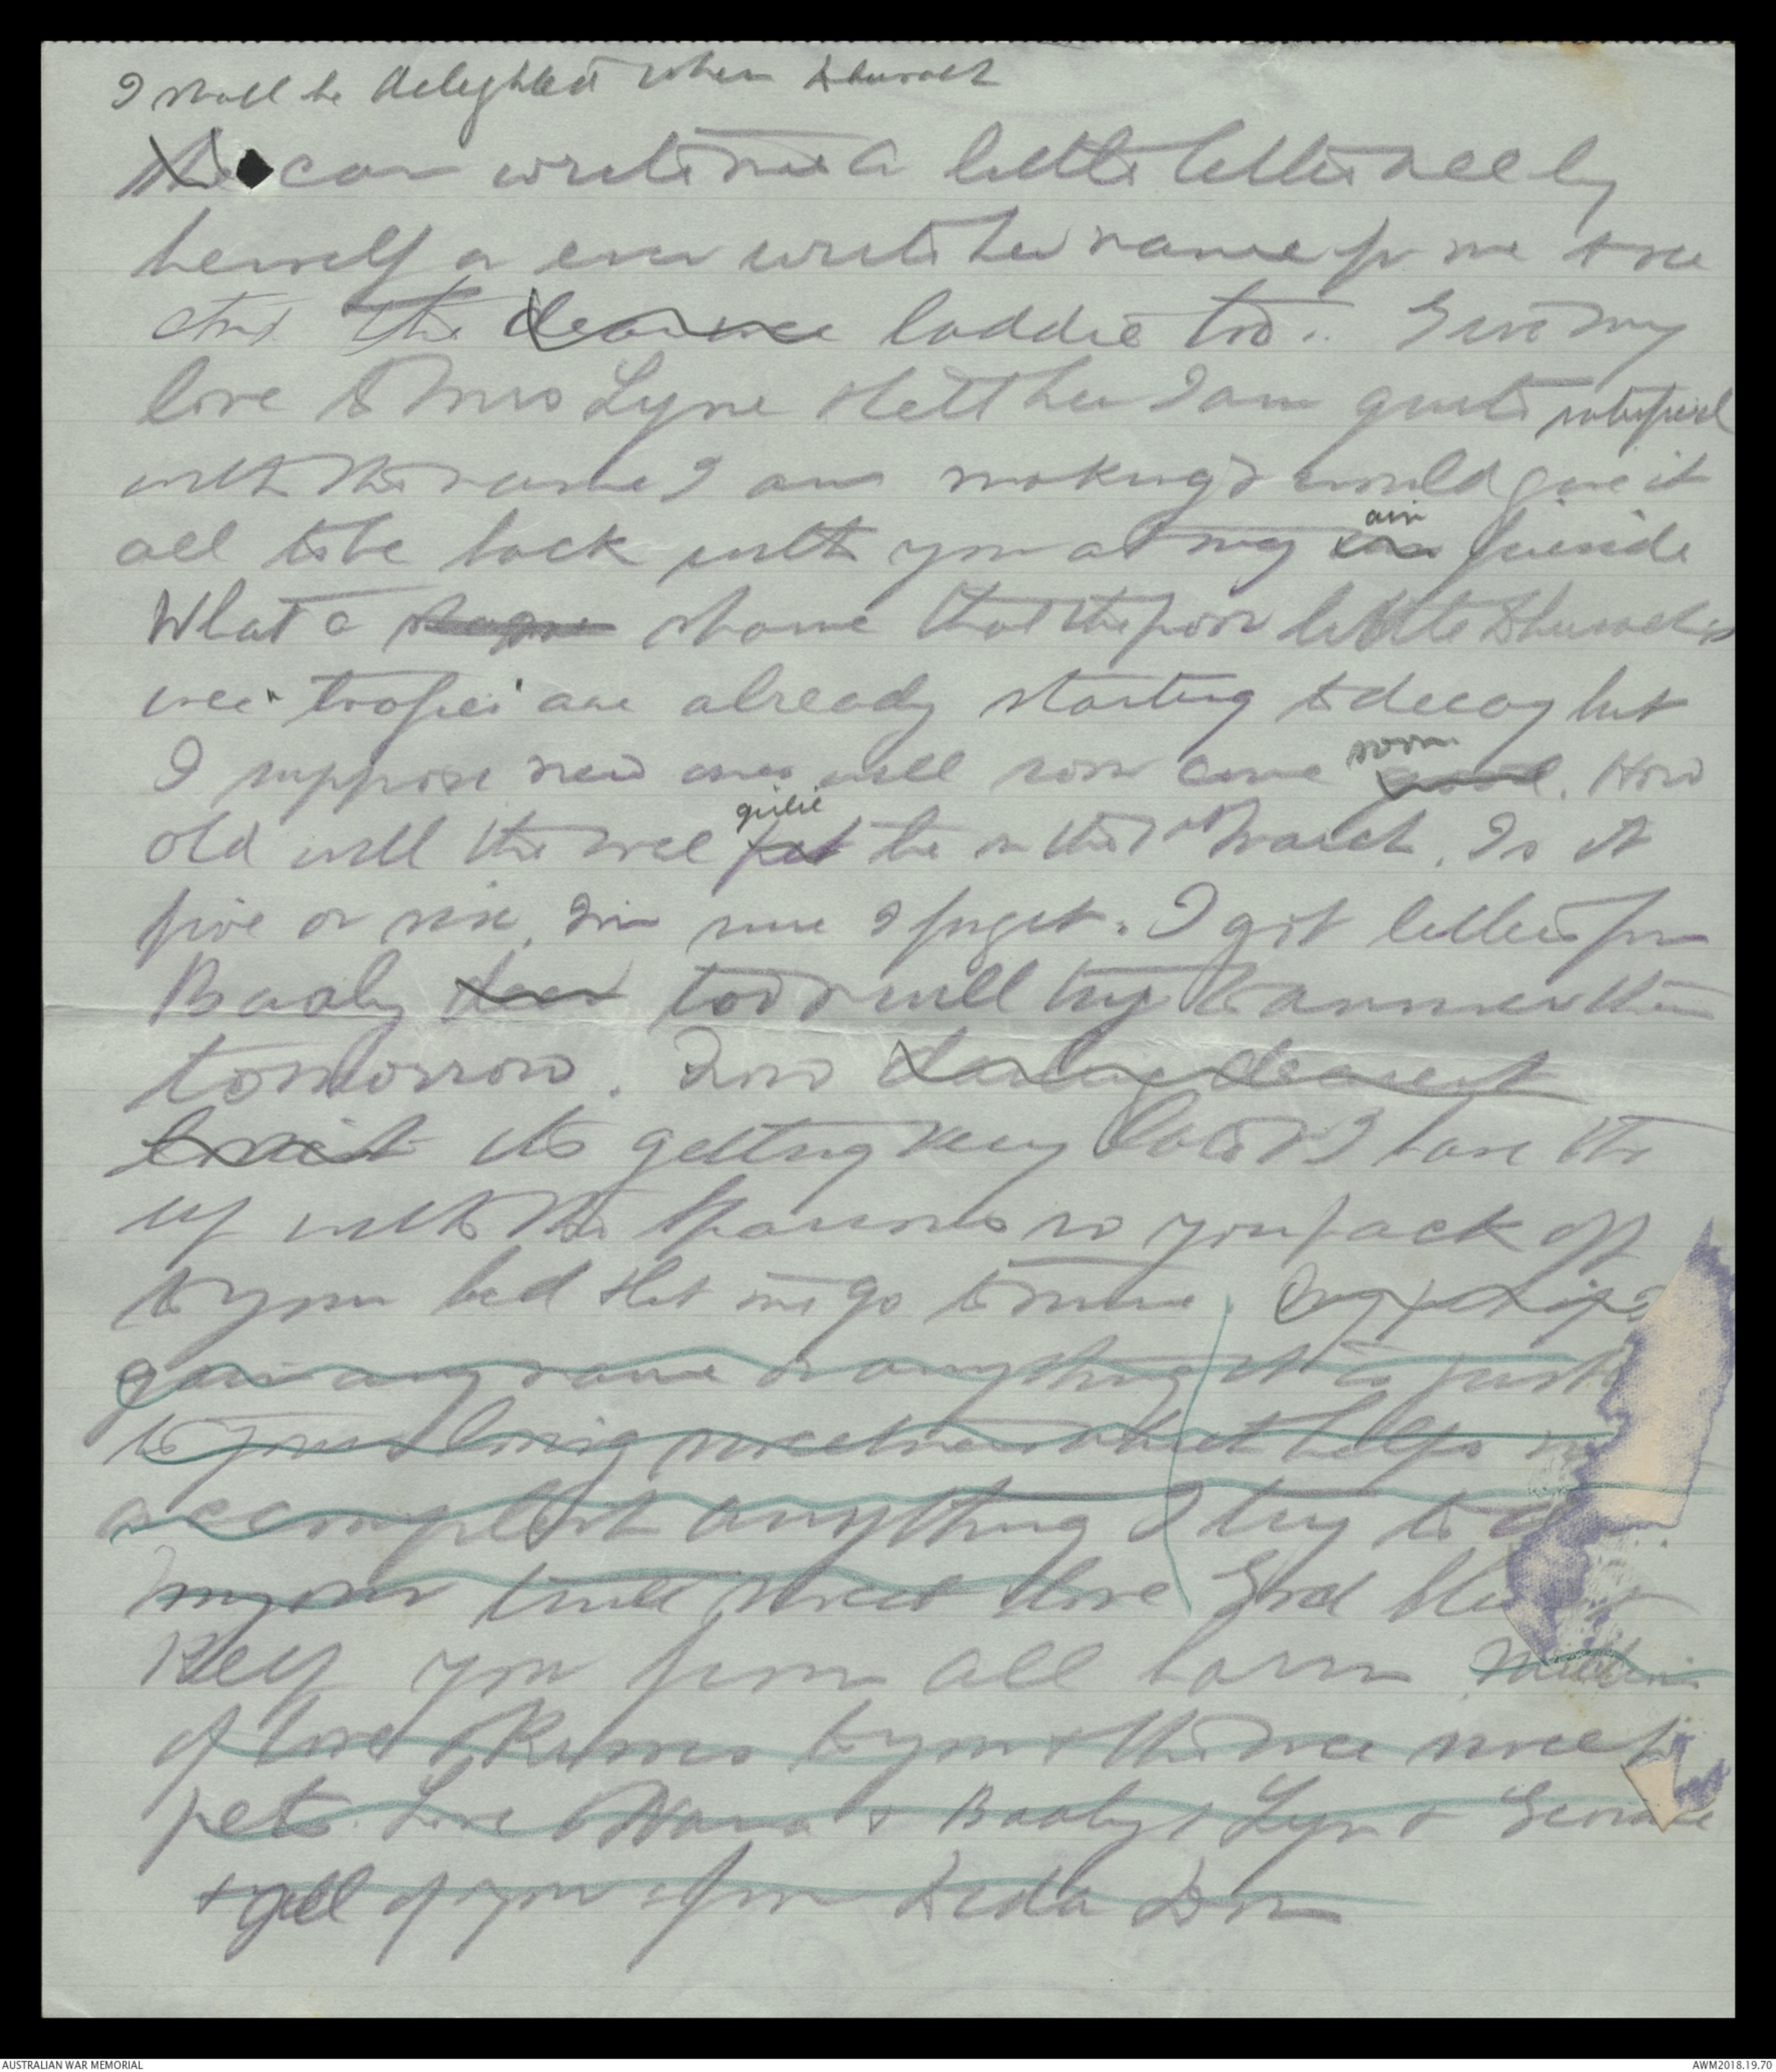 I shall be delighted when
she can write me a little letter all by
herself or even write her name for me & see
the dear wee laddie too. Give my
love to Mrs Lyne & tell her I am quite satisfied
with the name I am making & would give it
ain
all to be back with you at my ain fireside
What a shame that the poor little
wee "tropies" are already starting to decay but
soon
I suppose new ones will soon come. How
girlie
old will the wee pet be on the March. Is it
five or six, I'm sure I forget. I got letters from
Baaly dear too & will try to answer them
tomorrow. Now darling dearest
its getting very late & I have to
up with the Sparrows so you pack off
to your bed & let me go to mine.
gain any name or anything it is just
to your loving sweetness that helps
accomplish anything I try to
my own true sweet love God bless
Keep you from all harm
of love & Kisses to you & the wee sweet
pets. Love to Nana & Baaly & Lyn & George
& all of you from Dida Don
AUSTRALIAN WAR MEMORIAL
AWM2018.19.70